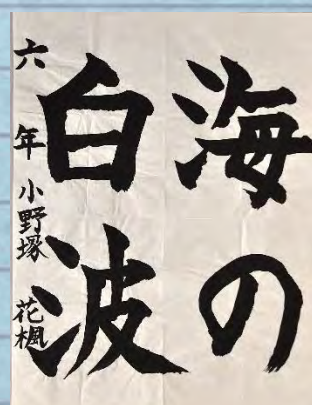 海の
白波
六年 小野塚 花楓